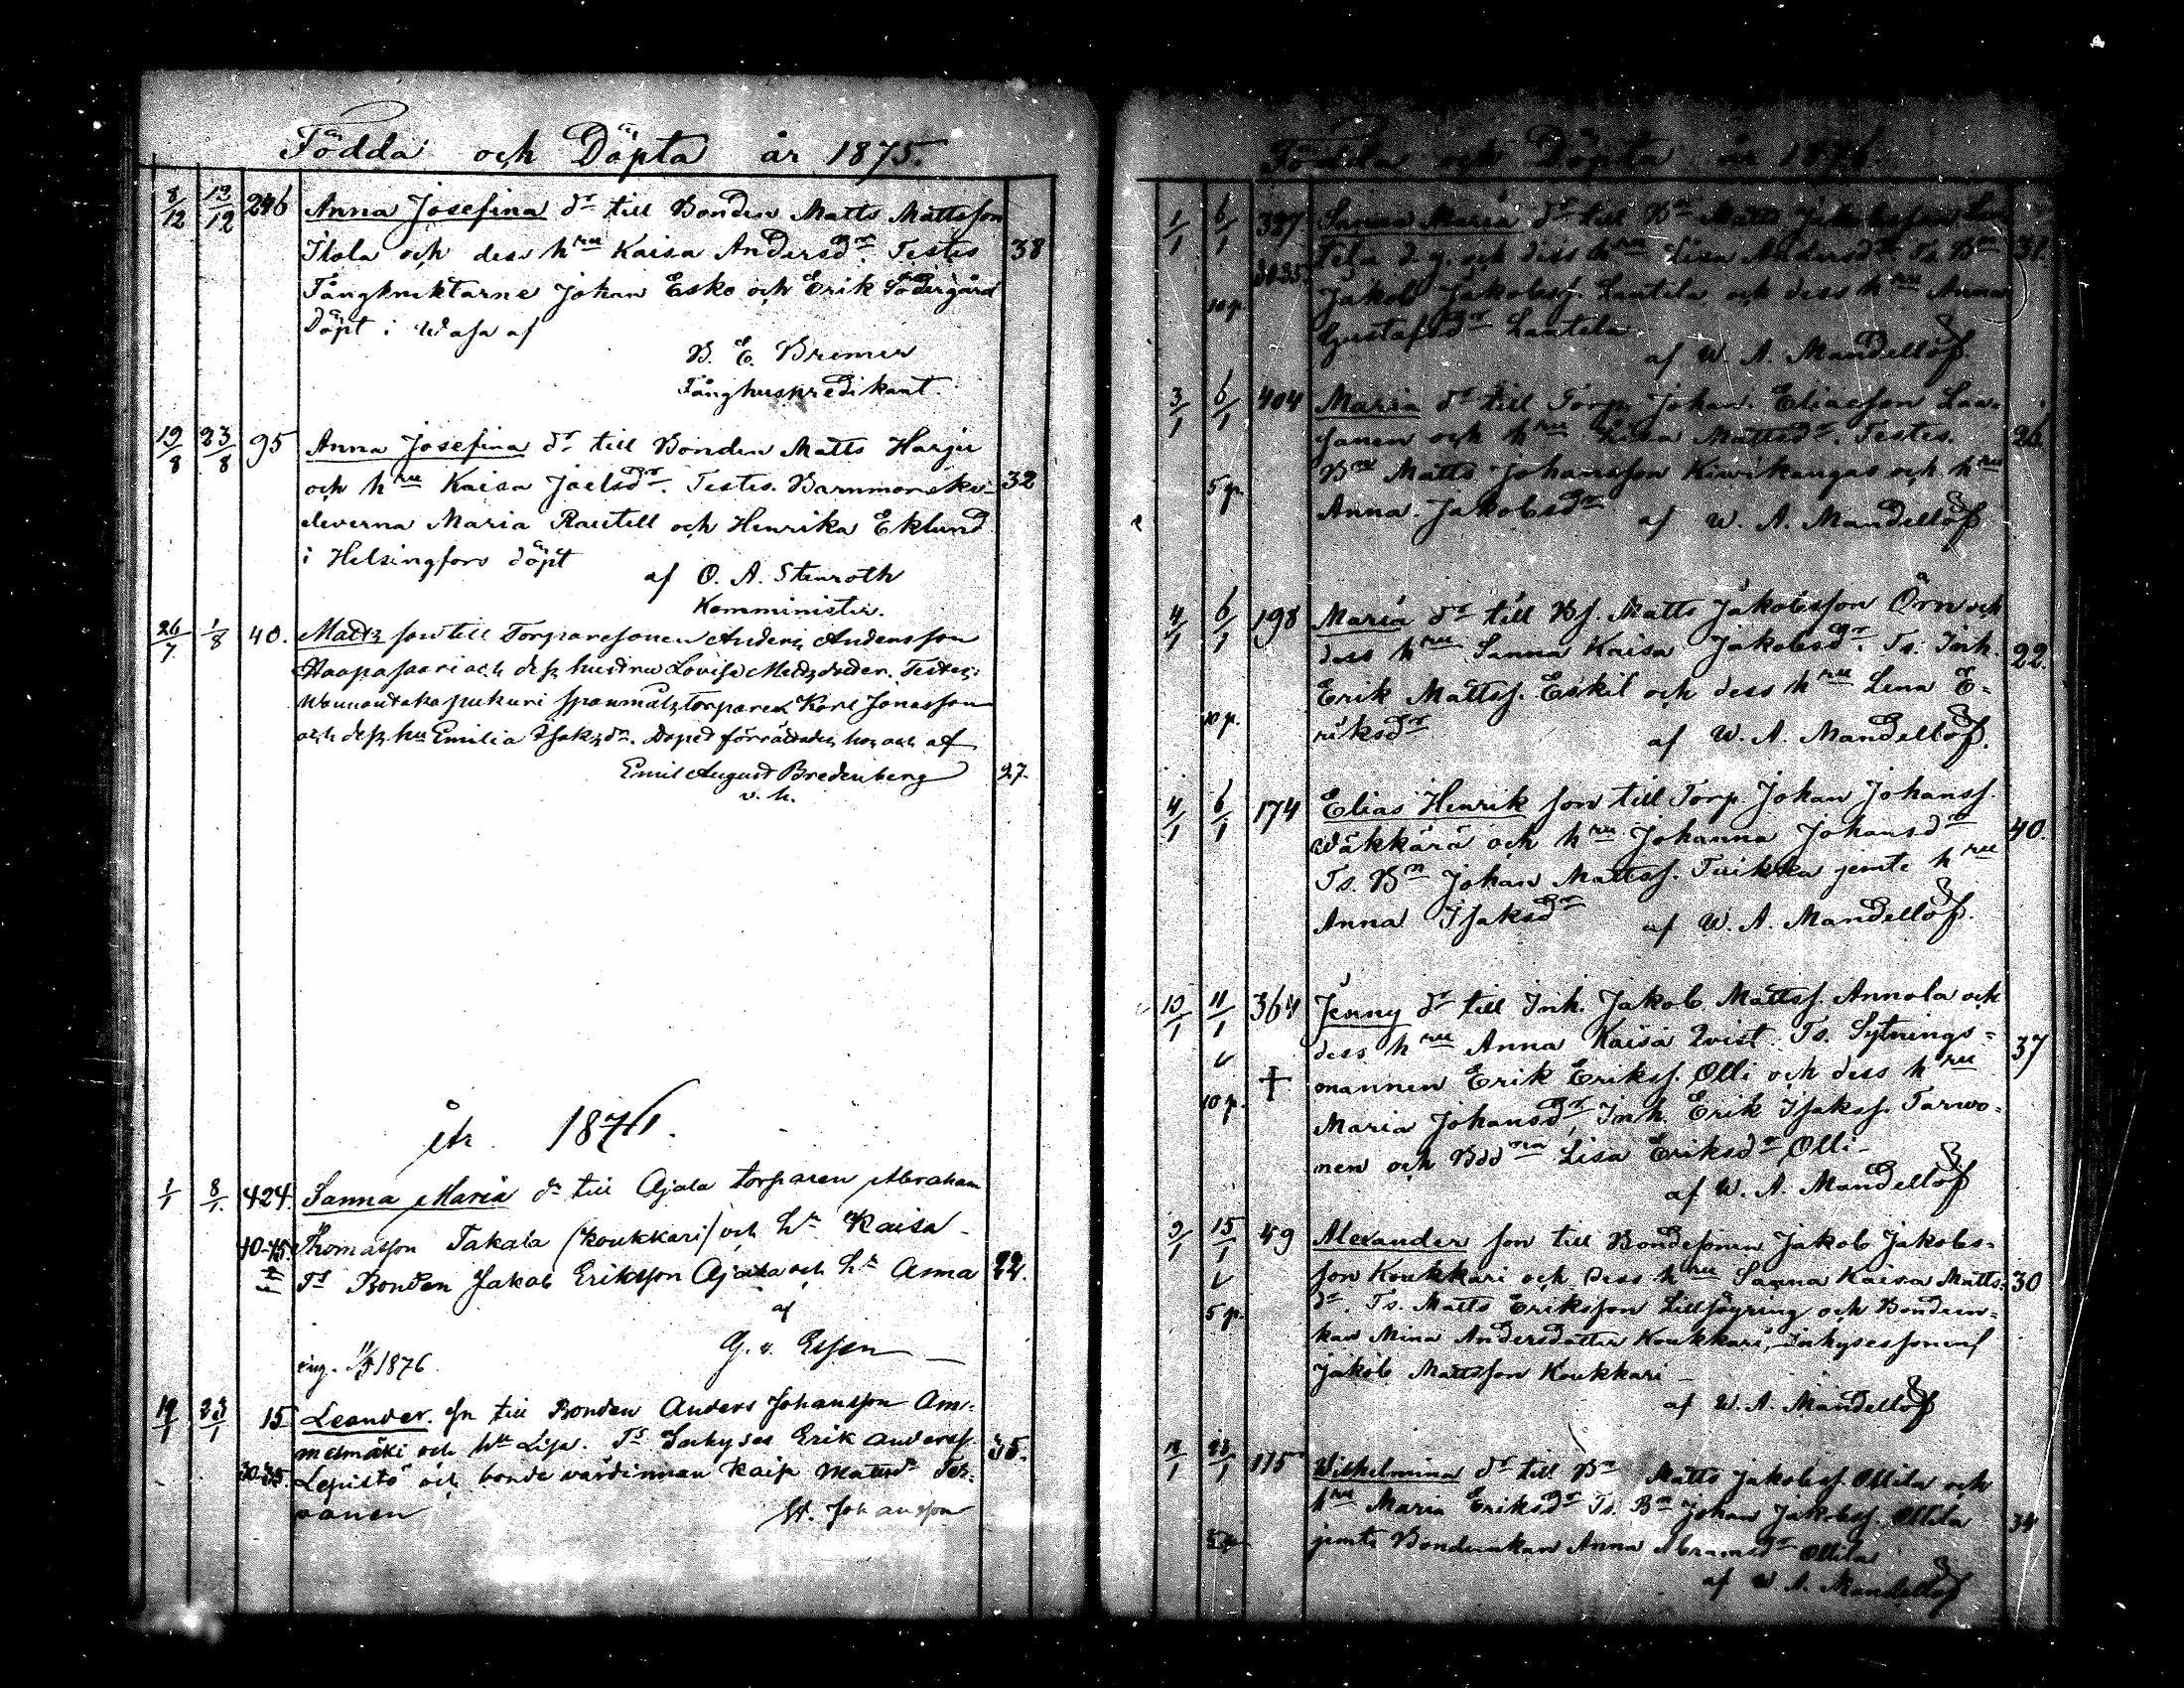 Födda och Döpta år 1875.
8/12 13/12 246 Anna Josefina dr till Bonden Matts Mattsson
Ilola och dess hru Kaisa Andersdr. Testes 38
Fångknektarne Johan Esko och Erik Södergård
Döpt i Wasa af
B. E. Bremer
Fånghuspredikant.
19/8 23/8 95 Anna Josefina dr till Bonden Matts Harju
och hru Kaisa Joelsdr. Testes. Barnmorske- 32
eleverna Maria Rautell och Henrika Eklund
i Helsingfors döpt
af O. A. Stenroth
Komminister.
26/7 1/8 40. Matts son till Torparesonen Anders Andersson
Haapasaari och dess hustru Lovisa Matsdoter. Testes:
spanmålstorparen Karl Jonasson
och dess hu Emilia Isaksdr. Dopet förrättades hos och af
Emil August Bredenberg 27.
v. h.
År 1876.
1/1 8/1. 424. Sanna Maria dr till Ajala torparen Abraham
40-45 Thomasson Takala (Koukkari) och hu Kaisa
Ts Bonden Jakob Eriksson Ajala och hu Anna 22.
af
G. v. Essen
ing. 1876.
19/1 23/1 15 Leander. Sn till Bonden Anders Johansson Am-
melmäki och hu Lisa. Ts Inhyses Erik Anderss. 35.
30-35. Lepistö och bonde värdinnan Kaisa Mattsdr Ter-
vonen
Johansson
Födda och Döpta år 1876
1/1 6/1 387 Sanna Maria dr till Bn Matts Jakobsson Lau
3035. tela d.y. och dess hru Lisa Andersdr. Ts. Bn 31.
10 p. Jakob Jakobss. Lautela och dess hru Anna
Gustafsdr Lautela
af W. A. Mandellöf.
3/1 6/1 404 Maria dr till Torp. Johan Eliasson Laa-
sanen och hru Lisa Mattsdr. Testes. 26.
5 p. Bn Matts Johansson Kiwikangas och hru
Anna Jakobsdr
af W. A. Mandellöf
4/1 6/1 198 Maria dr till Bs. Matts Jakobsson Örn och
dess hru Sanna Kaisa Jakobsdr. Ts. Inh. 22.
Erik Mattss. Eskil och dess hru Lena E-
10 p. riksdr
af W. A. Mandellöf.
4/1 6/1 174 Elias Henrik son till Torp. Johan Johanss.
Wäkkärä och hru Johanna Johansdr 40.
Ts. Bn Johan Mattss. Tuikka jemte hru
Anna Isaksdr
af W. A. Mandellöf.
10/1 11/1 364 Jenny dr till Inh. Jakob Mattss. Annola och
dess hru Anna Kaisa Qvist. Ts. Sytnings- 37
† mannen Erik Erikss. Olli och dess hru
10 p. Maria Johansdr, Inh. Erik Isakss. Tarwo-
nen och Bdd Lisa Eriksdr Olli
af W. A. Mandellöf
9/1 15/1 49 Alexander son till Bondesonen Jakob Jakobs-
son Koukkari och Dess hru Sanna Kaisa Matts- 30
5 p. dr. Ts. Matts Eriksson Lillsöyring och Bondeen-
kan Mina Andersdotter Koukkari, Inhysessonen
Jakob Mattsson Koukkari
af W. A. Mandellöf
18/1 23/1 175 Wilhelmina dr till Bn Matts Jakobss. Ollila och
hru Maria Eriksdr Ts. Bn Johan Jakobss. Ollila 34
5 p. jemte Bondeenkan Anna Abramsdr Ollila
af W. A. Mandellöf